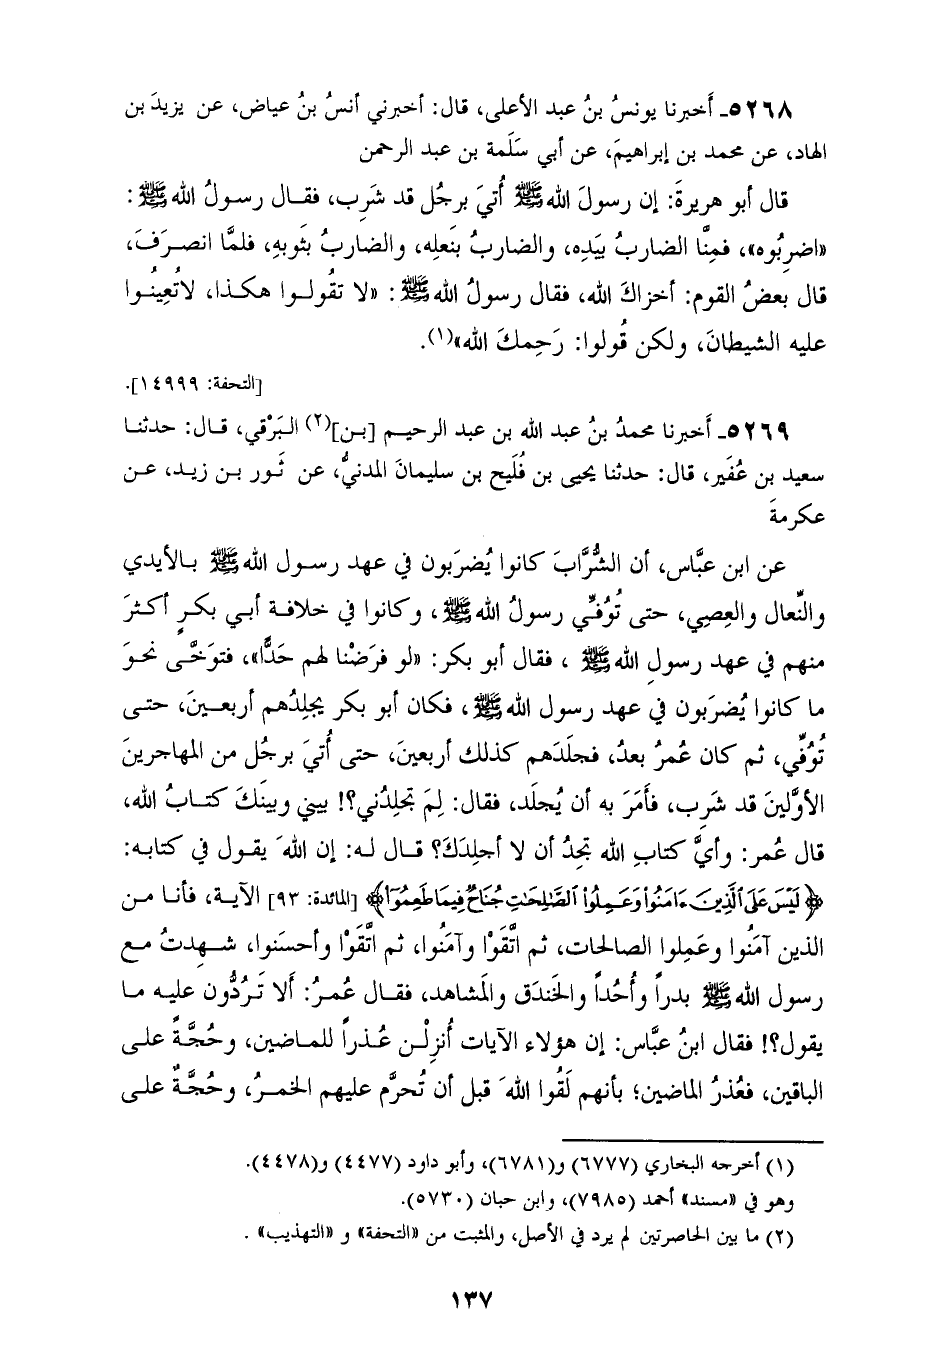 ٥٢٦٨ـ أَخبرنا يونسُ بنُ عبد الأعلى، قال: أخبرني أنسُ بنُ عياض، عن يزيدَ بن
الهاد، عن محمد بن إبراهيمَ، عن أبي سَلَمة بن عبد الرحمن
قال أبو هريرةَ: إن رسولَ الله ﷺ أُتيَ برجُل قد شَرِب، فقـال رسـولُ الله ﷺ :
«اضرِبُوه»، فمِنَّا الضاربُ بيَدِه، والضاربُ بنَعلِه، والضاربُ بثَوبهِ، فلمَّا انصـرَفَ،
قال بعضُ القوم: أخزاكَ الله، فقال رسولُ الله ﷺ : «لا تقُولـوا هكـذا، لاتُعِينُـوا
عليه الشيطانَ، ولكن قُولوا: رَحِمكَ الله»(١).
[التحفة: ١٤٩٩٩].
٥٢٦٩ـ أَخبرنا محمدُ بنُ عبد الله بن عبد الرحيـم [بـن](٢) البَرْقي، قـال: حدثنـا
سعيد بن عُفَير، قال: حدثنا يحيى بن فُلَيح بن سليمانَ المدنيُّ، عن ثَور بـن زيـد، عـن
عكرمةَ
عن ابن عبَّاس، أن الشُّرَّابَ كانوا يُضرَبون في عهد رسـول الله ﷺ بـالأيدي
والنِّعال والعِصِي، حتى تُوُفِّي رسولُ الله ﷺ، وكانوا في خلافة أبـي بكـرٍ أكثـرَ
منهم في عهد رسولِ الله ﷺ ، فقال أبو بكر: «لو فرَضْنا لهم حَدًّا»، فتوَخَّـى نحـوَ
ما كانوا يُضرَبون في عهد رسول الله ﷺ، فكان أبو بكر يجلِدُهم أربعـينَ، حتـى
تُوُفِّي، ثم كان عُمرُ بعدُ، فجلَدَهم كذلك أربعينَ، حتى أُتيَ برجُل من المهاجرينَ
الأوَّلينَ قد شَرِب، فأَمَرَ به أن يُجلَد، فقال: لِمَ تجلِدُني؟! بيني وبينَكَ كتـابُ الله،
قال عُمر: وأيَّ كتابِ الله تجدُ أن لا أجلِدَكَ؟ قـال لـه: إن اللهَ يقـول في كتابـه:
﴿لَيْسَ عَلَى ٱلَّذِينَ ءَامَنُوا۟ وَعَمِلُوا۟ ٱلصَّٰلِحَٰتِ جُنَاحٌ فِيمَا طَعِمُوٓا۟﴾ [المائدة: ٩٣] الآيـة، فأنـا مـن
الذين آمَنُوا وعَمِلوا الصالحات، ثم اتَّقَوْا وآمَنُوا، ثم اتَّقَوْا وأحسَنوا، شـهِدتُ مـع
رسول الله ﷺ بدراً وأُحُداً والخندَق والمَشاهد، فقـال عُمـرُ: أَلا تَـرُدُّون عليـه مـا
يقول؟! فقال ابنُ عبَّاس: إن هؤلاء الآيات أُنزِلْـن عُـذراً للمـاضين، وحُجَّـةً علـى
الباقين، فعُذرُ الماضين؛ بأنهم لَقُوا اللهَ قبل أن تُحرَّم عليهم الخمـرُ، وحُجَّـةٌ علـى
(١) أخرجه البخاري (٦٧٧٧) و(٦٧٨١)، وأبو داود (٤٤٧٧) و(٤٤٧٨).
وهو في «مسند» أحمد (٧٩٨٥)، وابن حبان (٥٧٣٠).
(٢) ما بين الحاصرتين لم يرد في الأصل، والمثبت من «التحفة» و «التهذيب» .
١٣٧